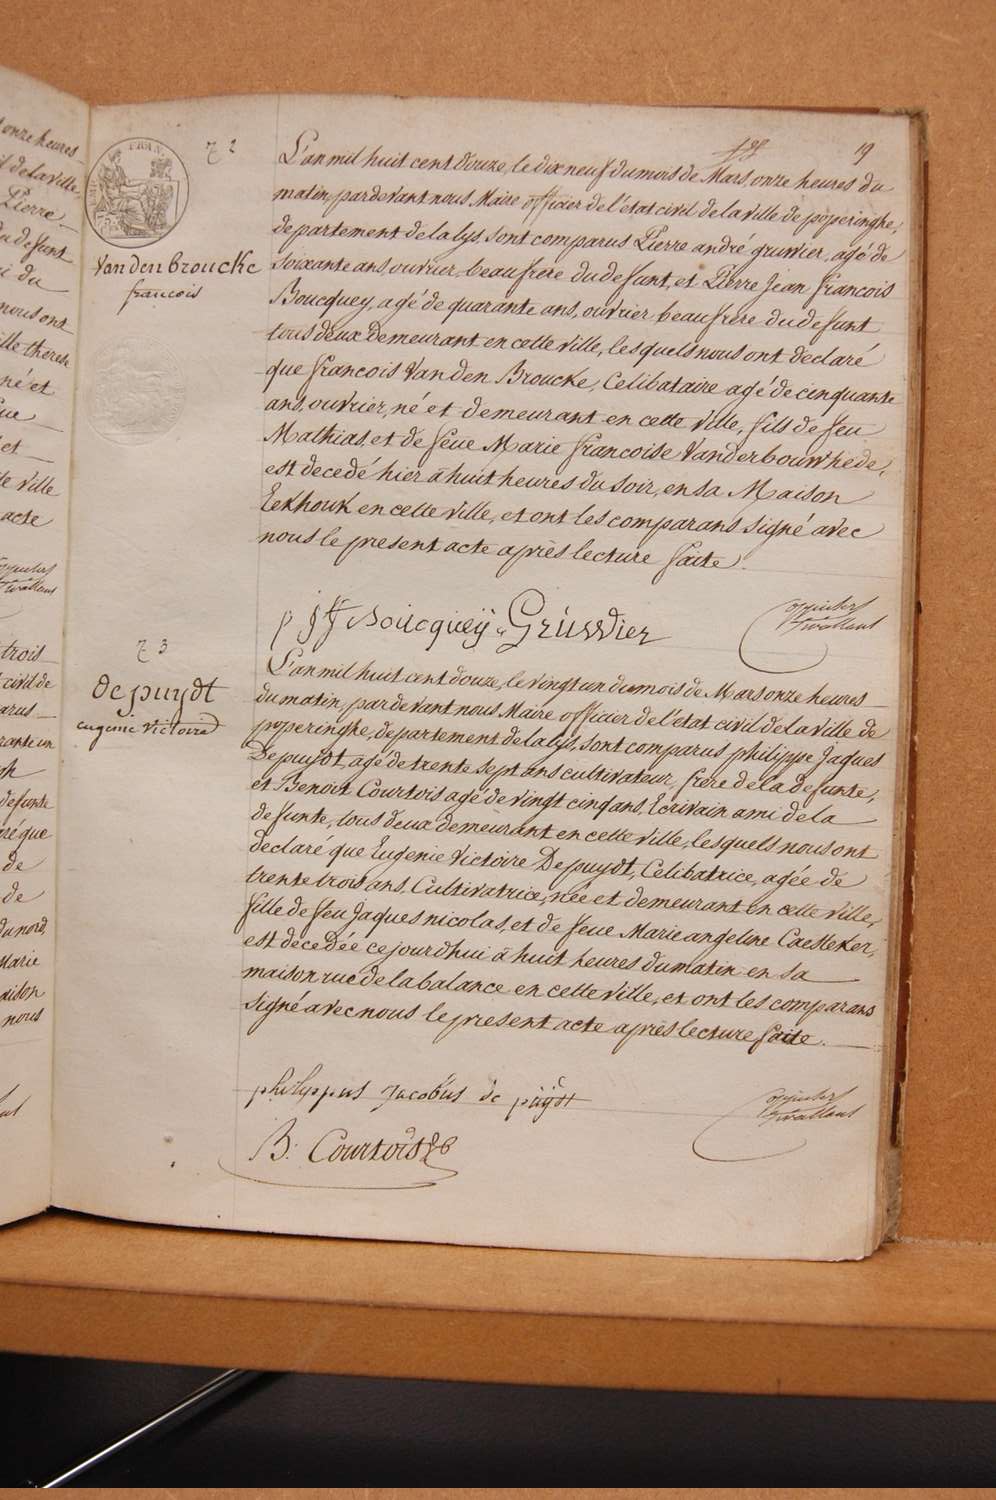 onze heures
72
19
il de la ville
Pierre
du defunt
Vandenbroucke
francois
L'an mil huit cent douze, le dix neuf du mois de Mars, onze heures du
matin, par devant nous Maire officier de l'etat civil de la ville de poperinghe,
departement de la lys, sont comparus Pierre andré gruwier, agé de
soixante ans, ouvrier beaufrere du defunt, et Pierre Jean francois
Boucquey, agé de quarante ans, ouvrier beaufrere du defunt
tous deux demeurant en cette ville, lesquels nous ont declaré
que francois Van den Broucke, Celibataire agé de cinquante
ans, ouvrier, né et demeurant en cette Ville, fils de feu
Mathias, et de feue Marie francoise Vanderbouwhede,
est decedé hier à huit heures du soir, en sa Maison
Eekhouk en cette ville, et ont les comparans signé avec
nous le present acte après lecture faite.
p j ff Boucqueÿ Grüwier
73
de puydt
eugenie victoire
L'an mil huit cent douze, le vingt un du mois de Mars onze heures
du matin, par devant nous Maire officier de l'etat civil de la ville de
poperinghe, departement de la lys, sont comparus philippe Jaques
Depuydt, agé de trente sept ans cultivateur, frere de la defunte,
et Benoit Courtois agé de vingt cinq ans, Ecrivain ami de la
defunte, tous deux demeurant en cette ville, lesquels nous ont
declaré que Eugenie Victoire Depuydt, Celibatrice, agée de
trente trois ans, Cultivatrice, née et demeurant en cette Ville,
fille de feu Jaques nicolas, et de feue Marie angeline Caesteker,
est decedée ce jourdhui à huit heures du matin en sa
maison rue de la balance en cette ville, et ont les comparans
signé avec nous le present acte après lecture faite.
philyppus Jacobus de püÿdt
B: Courtois